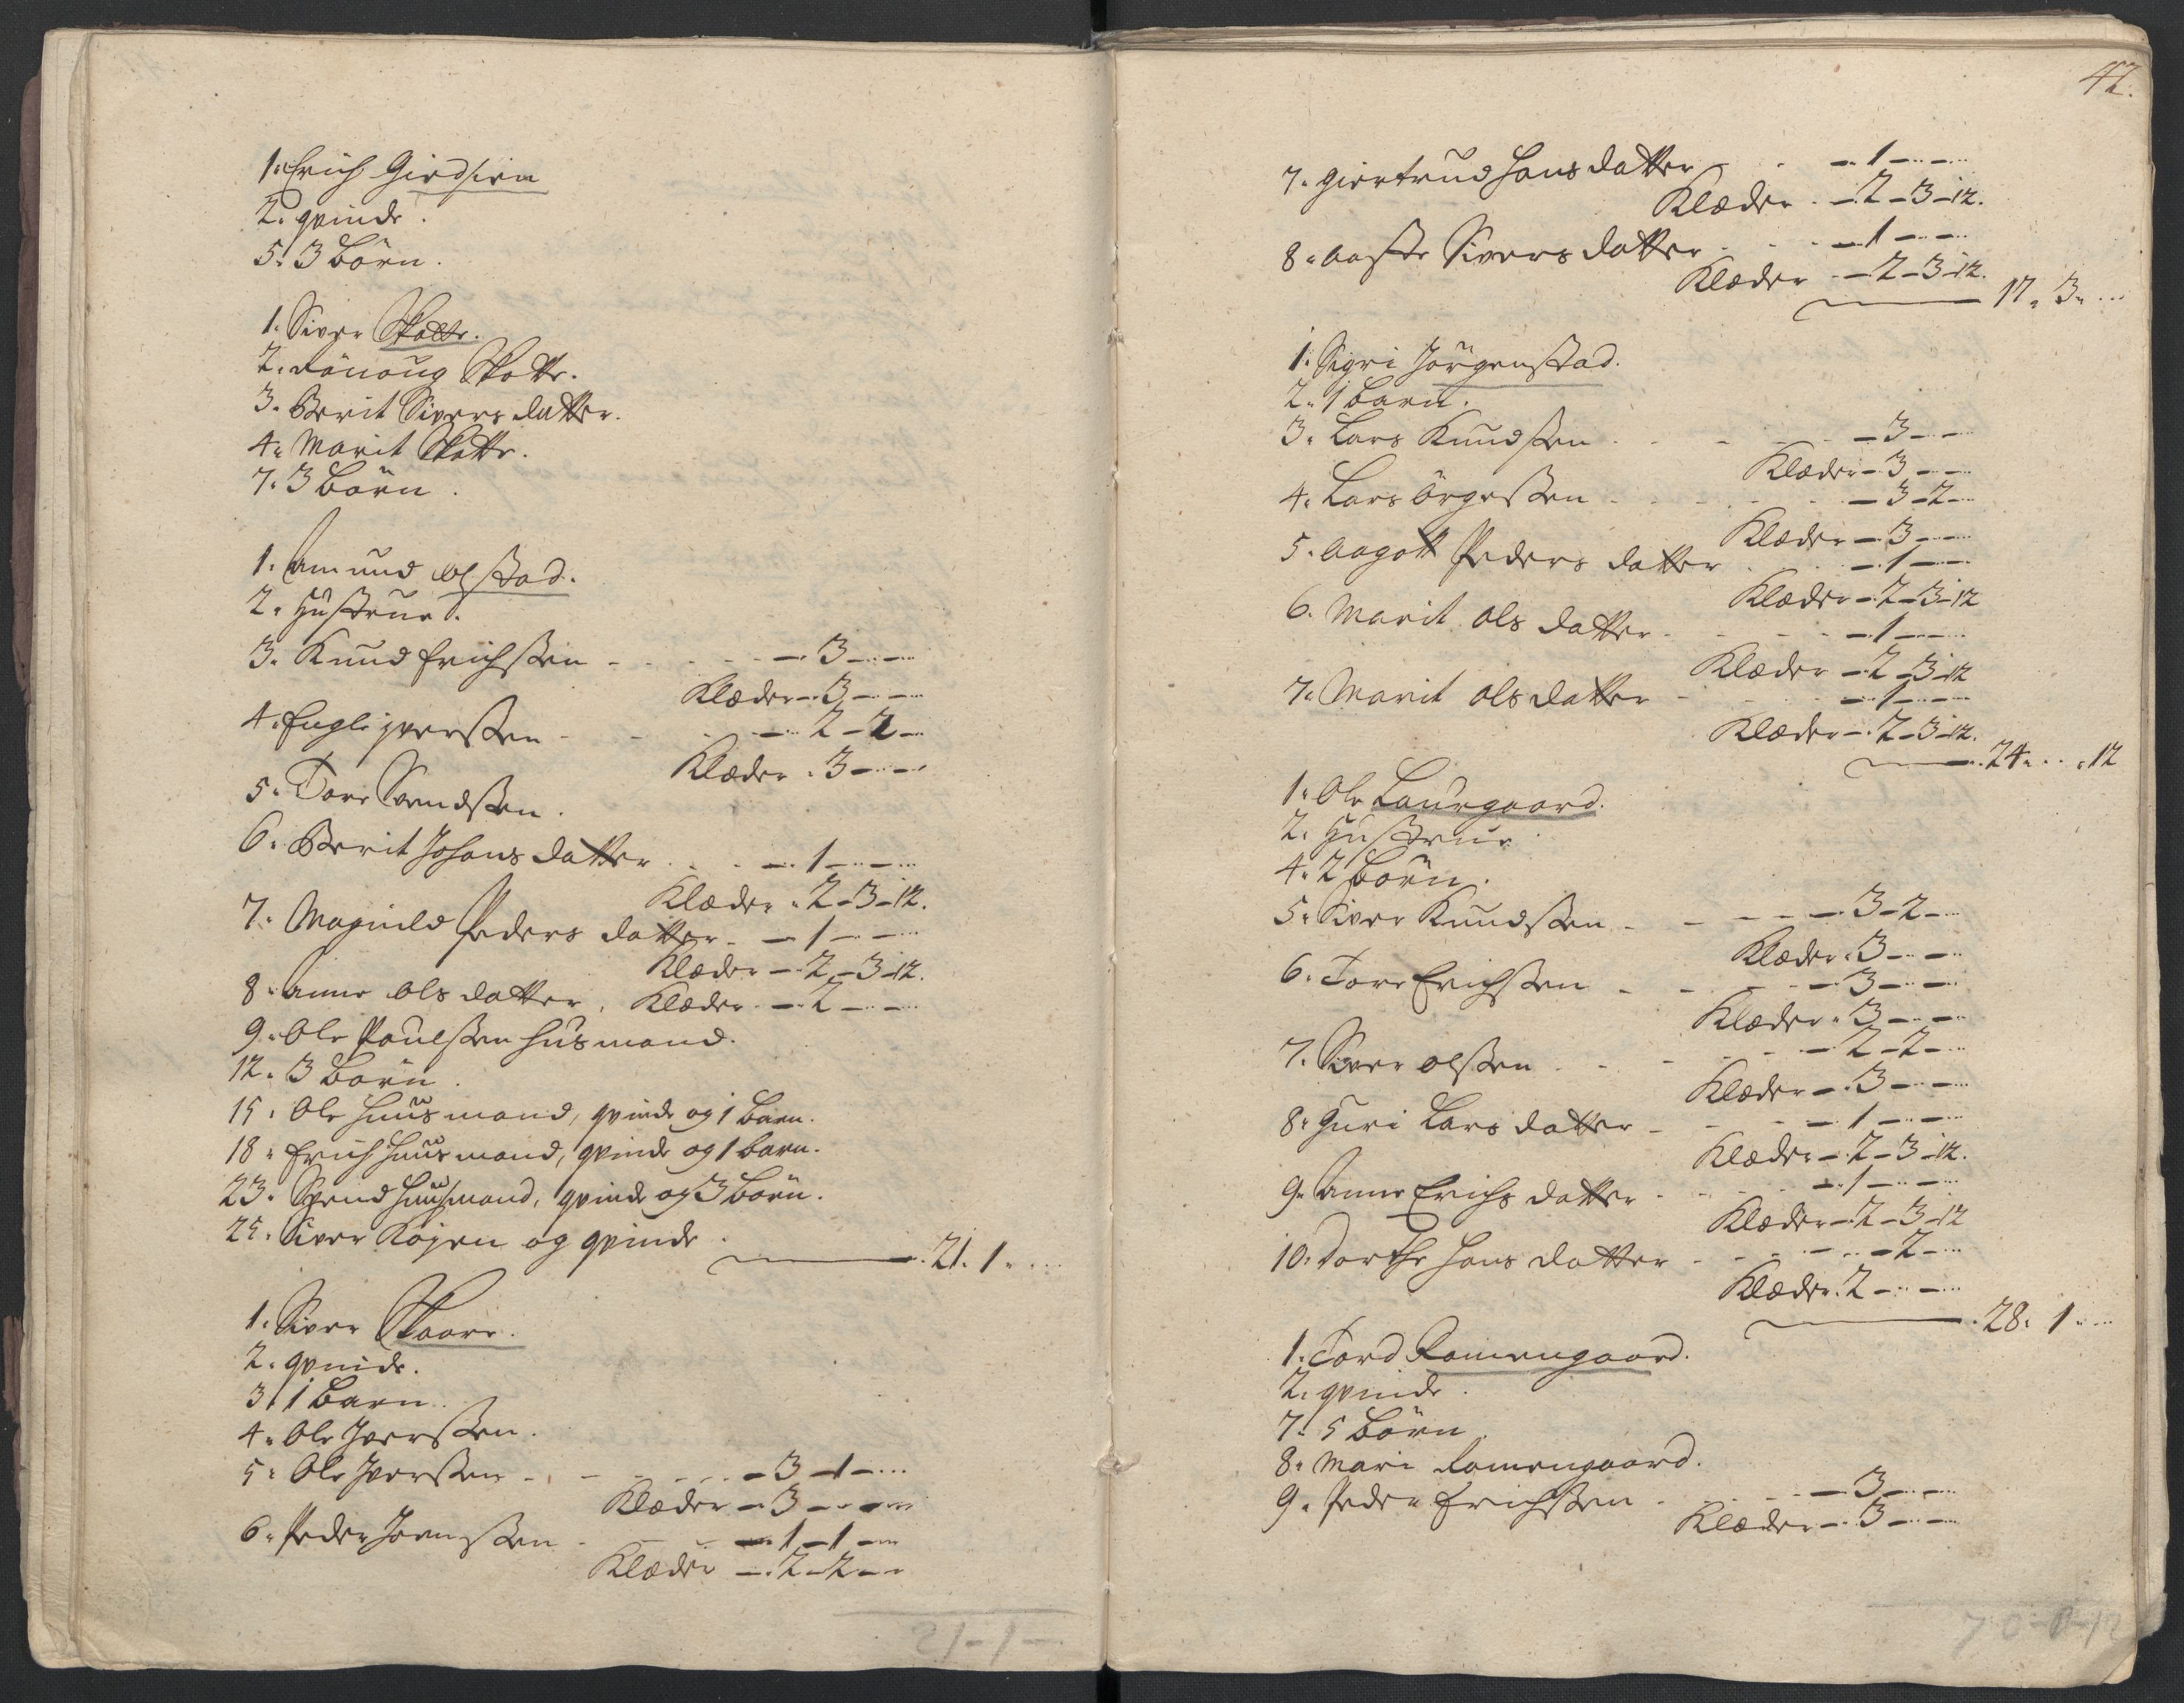 1. Erich Giedsiem
2. qvinde.
5. 3 Börn.
1. Siver Skotte.
2. Rönoug Skotte.
3. Berit Sivers datter.
4. Marit Skotte.
7. 3 Börn.
1. Amund Olstad.
2. Hustrue.
3. Knud Erichssen - 3 - -
Klæder - 3 - -
4. Engli iverssen - 2 - 2 -
Klæder . 3 - -
5. Tore Svendssen.
6. Berit Johans datter - 1 - -
Klæder . 2 - 3 - 12.
7. Magnild Peders datter - 1 - -
Klæder - 2 - 3 - 12.
8. Anne Ols datter. Klæder - 2 - -
9. Ole Poulssen husmand.
12. 3 Börn.
15. Ole huusmand, qvinde og 1 Barn.
18. Erich huusmand, qvinde og 1 barn.
23. Svend huusmand, qvinde og 3 börn.
25. Siver Köjen og qvinde.
21. 1. ...
1. Siver Skaare.
2. qvinde.
3. 1 Barn.
4. Ole Iverssen.
5. Ole Iverssen - 3 - 1 -
Klæder - 3 - -
6. Peder Joenssen - 1 - 1 -
Klæder - 2 - 2 -
21 - 1 -
42.
7. Giertrud Hans datter - 1 - -
Klæder - 2 - 3 - 12.
8. Aaste Sivers datter - 1 - -
Klæder - 2 - 3 - 12.
17. 3. ...
1. Sigri Jörgenstad.
2. 1 barn.
3. Lars Knudssen - 3 - -
Klæder - 3 - -
4. Lars Örgessen - 3 - 2 -
Klæder - 3 - -
5. Aagott Peders datter - 1 - -
Klæder - 2 - 3 - 12
6. Marit Ols datter - 1 - -
Klæder - 2 - 3 - 12
7. Marit Ols datter - 1 - -
Klæder - 2 - 3 - 12.
24. .. 12
1. Ole Laurgaard.
2. Hustrue.
4. 2 Börn.
5. Siver Knudssen - 3 - 2 -
Klæder . 3 - -
6. Tore Erichssen - 3 - -
Klæder . 3 - -
7. Siver Olssen - 2 - 2 -
Klæder - 3 - -
8. Guri Lars datter - 1 - -
Klæder - 2 - 3 - 12.
9. Anne Erichs datter - 1 - -
Klæder - 2 - 3 - 12
10. Dorthe Hans datter - 2 -
Klæder . 2 - -
28. 1. ..
1. Tord Romengaard.
2. qvinde.
7. 5 Börn.
8. Mari Romengaard.
9. Peder Erichssen - 3 - -
Klæder - 3 - -
70 - 0 - 12